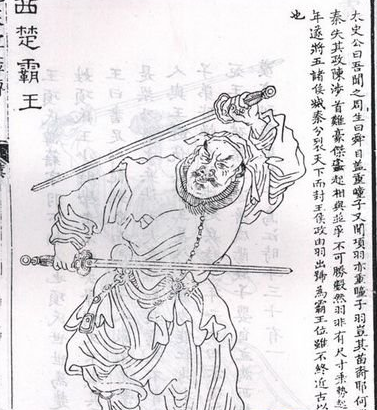 太史公曰吾聞之周生曰舜目蓋重瞳子又聞項羽亦重瞳子羽豈其苗裔耶何
秦失其政陳涉首難豪傑蠭起相與並爭不可勝數然羽非有尺寸乘勢起
年遂將五諸侯滅秦分裂天下而封王侯政由羽出號為霸王位雖不終近古以
也
西楚霸王